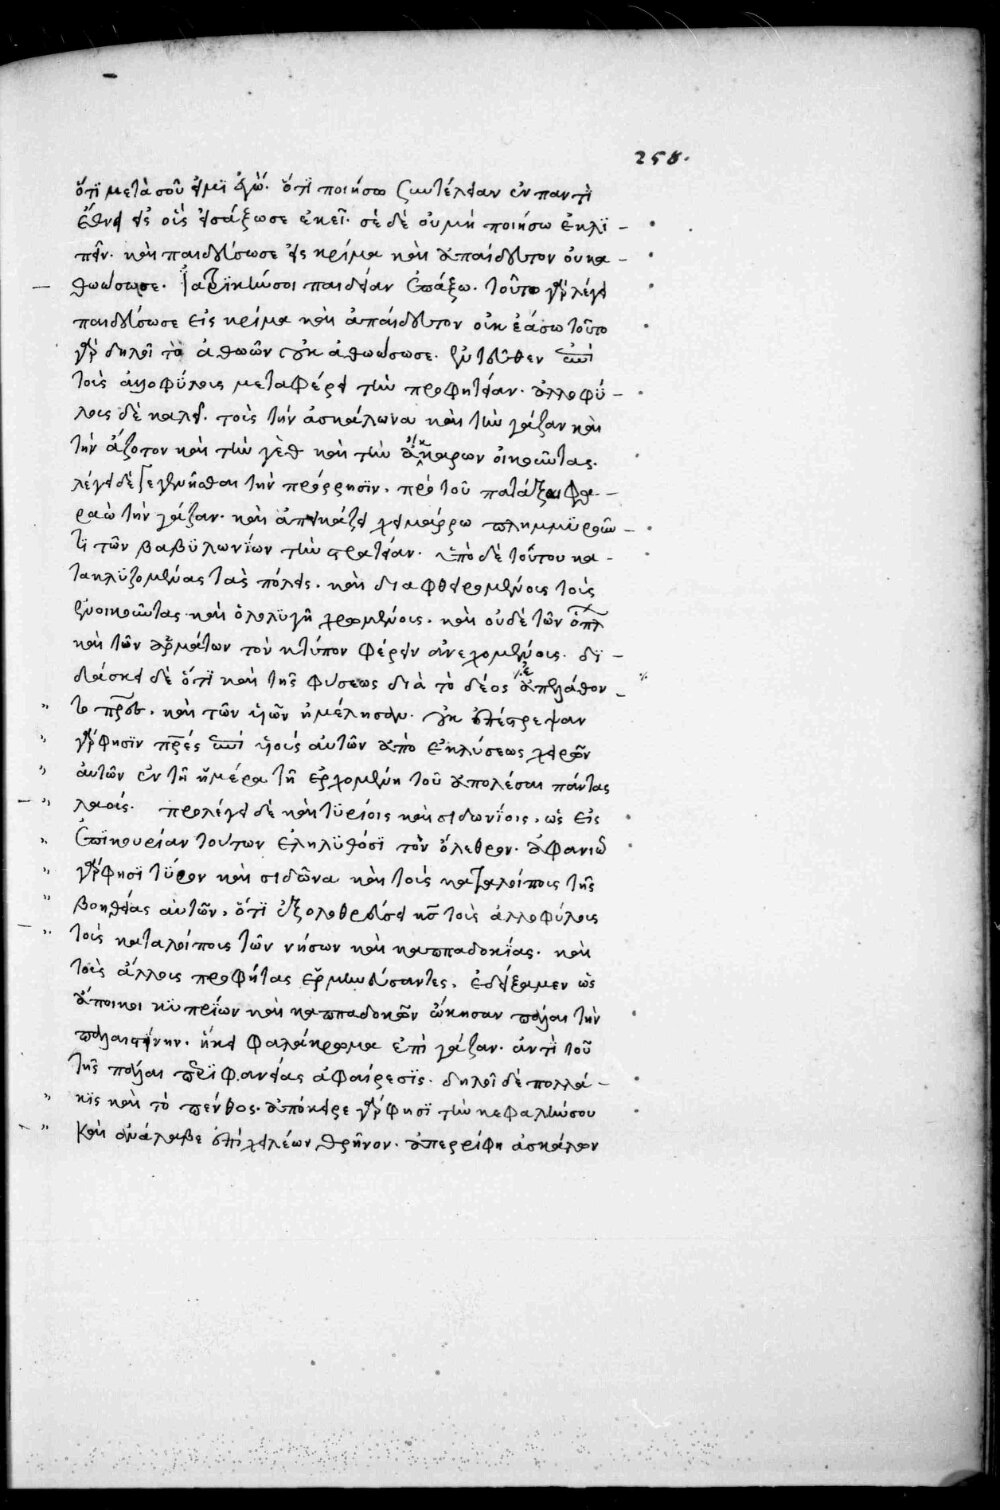 258.
ὅτϊ μετὰ σοῦ εἰμϊ ἐγώ. ὅτϊ ποιήσω συντέλειαν ἐν παντὶ
ἔθνει εἰς οἷς ἐσάξωσε ἐκεῖ. σὲ δὲ οὐ μὴ ποιήσω ἐκλϊ –
πεῖν. καὶ παιδεύσωσε εἰς κρίμα καὶ ἀπαίδευτον οὐκ α –
θωώσωσε. Ἰατρϊκήν σοι παιδείαν ἐπάξω. τοῦτο γὰρ λέγει
παιδεύσωσε εἰς κρίμα καὶ ἀπαίδευτον οὐκ ἐάσω τοῦτο
γὰρ δηλοῖ τὸ ἀθωῶν οὐκ ἀθωώσωσε. ἐντεῦθεν ἐπὶ
τοὺς ἀλλοφύλους μεταφέρει τὴν προφητείαν. ἀλλοφύ –
λους δὲ καλεῖ. τοὺς τὴν ἀσκάλωνα καὶ τὴν γάζαν καὶ
τὴν ἄζοτον καὶ τὴν γὲθ καὶ τὴν ἀκκαρων οἰκοῦντας.
λέγει δὲ γεγενῆσθαι τὴν πρόρρησϊν. πρὸ τοῦ πατάξαι φα –
ραὼ τὴν γάζαν. καὶ ἀπεικάζει χειμάρρω πλημμϋροῦν –
τϊ τῶν βαβϋλωνΐων τὴν στρατείαν. ὑπὸ δὲ τούτου κα –
τακλϋζομένας τὰς πόλεις. καὶ διαφθειρομένους τοὺς
ἐνοικοῦντας καὶ ὀλολϋγῆ χρωμένους. καὶ οὐδὲ τῶν ὅπλ
καὶ τῶν ἁρμάτων τὸν κτύπον φέρειν ἀνεχομένους. δϊ –
δάσκει δὲ ὅτϊ καὶ τῆς φύσεως διὰ τὸ δέος ἐπελάθον –
το πρσ. καὶ τῶν ϋἱῶν ἠμέλησαν. οὐκ ἐπέστρεψαν
γάρ φησϊν πρες ἐπὶ ϋἱοὺς αὐτῶν ἀπὸ ἐκλύσεως χειρῶν
αὐτῶν ἐν τῆ ἡμέρα τῆ ἐρχομένη τοῦ ἀπολέσαι πάντας
λαούς. προλέγει δὲ καὶ τϋρίοις καὶ σιδωνΐοις. ὡς εἰς
ἐπϊκουρίαν τούτων ἐληλϋθόσϊ τὸν ὄλεθρον. ἀφανιῶ
γάρ φησϊ τύρον καὶ σιδῶνα καὶ τοὺς καταλοίπους τῆς
βοηθείας αὐτῶν. ὅτϊ ἐξολοθρεύσει κσ τοὺς ἀλλοφύλους
τοὺς καταλοίπους τῶν νήσων καὶ καππαδοκΐας. καὶ
τοὺς ἄλλους προφήτας ἑρμηνεύσαντες. ἐδείξαμεν ὡς
ἄποικοι κϋπρΐων καὶ καππαδοκῶν ὤκησαν πάλαι τὴν
παλαιστίνην. ἥκει φαλάκρωμα ἐπὶ γάζαν. ἀντὶ τοῦ
τῆς πάλαι περϊφανείας ἀφαίρεσϊς. δηλοῖ δὲ πολλά –
κϊς καὶ τὸ πένθος. ἀπόκειρε γάρ φησϊ τὴν κεφαλήν σου
καὶ ἀνάλαβε ἐπὶ χειλέων θρῆνον. ἀπερρίφη ἀσκάλων